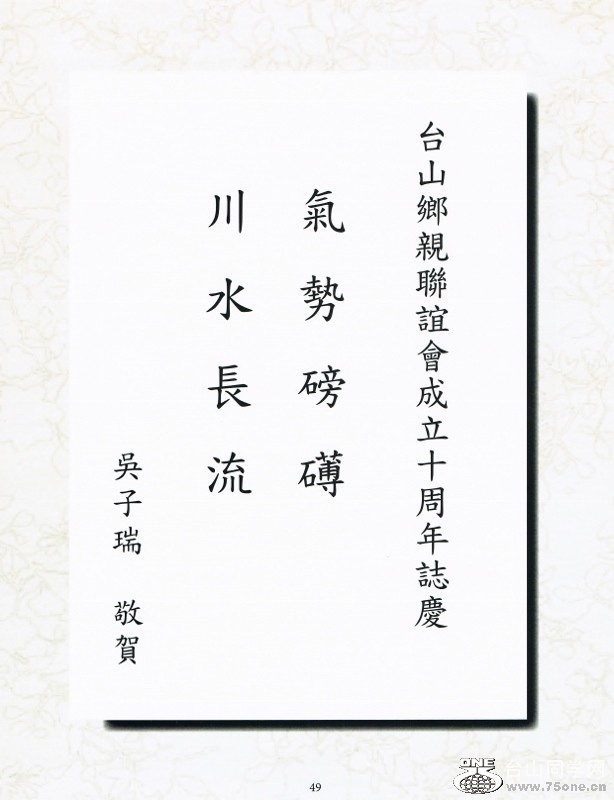 台山鄉親聯誼會成立十周年誌慶
氣勢磅礡
川水長流
吳子瑞 敬賀
49
ONE 台山同学网
www.75one.cn